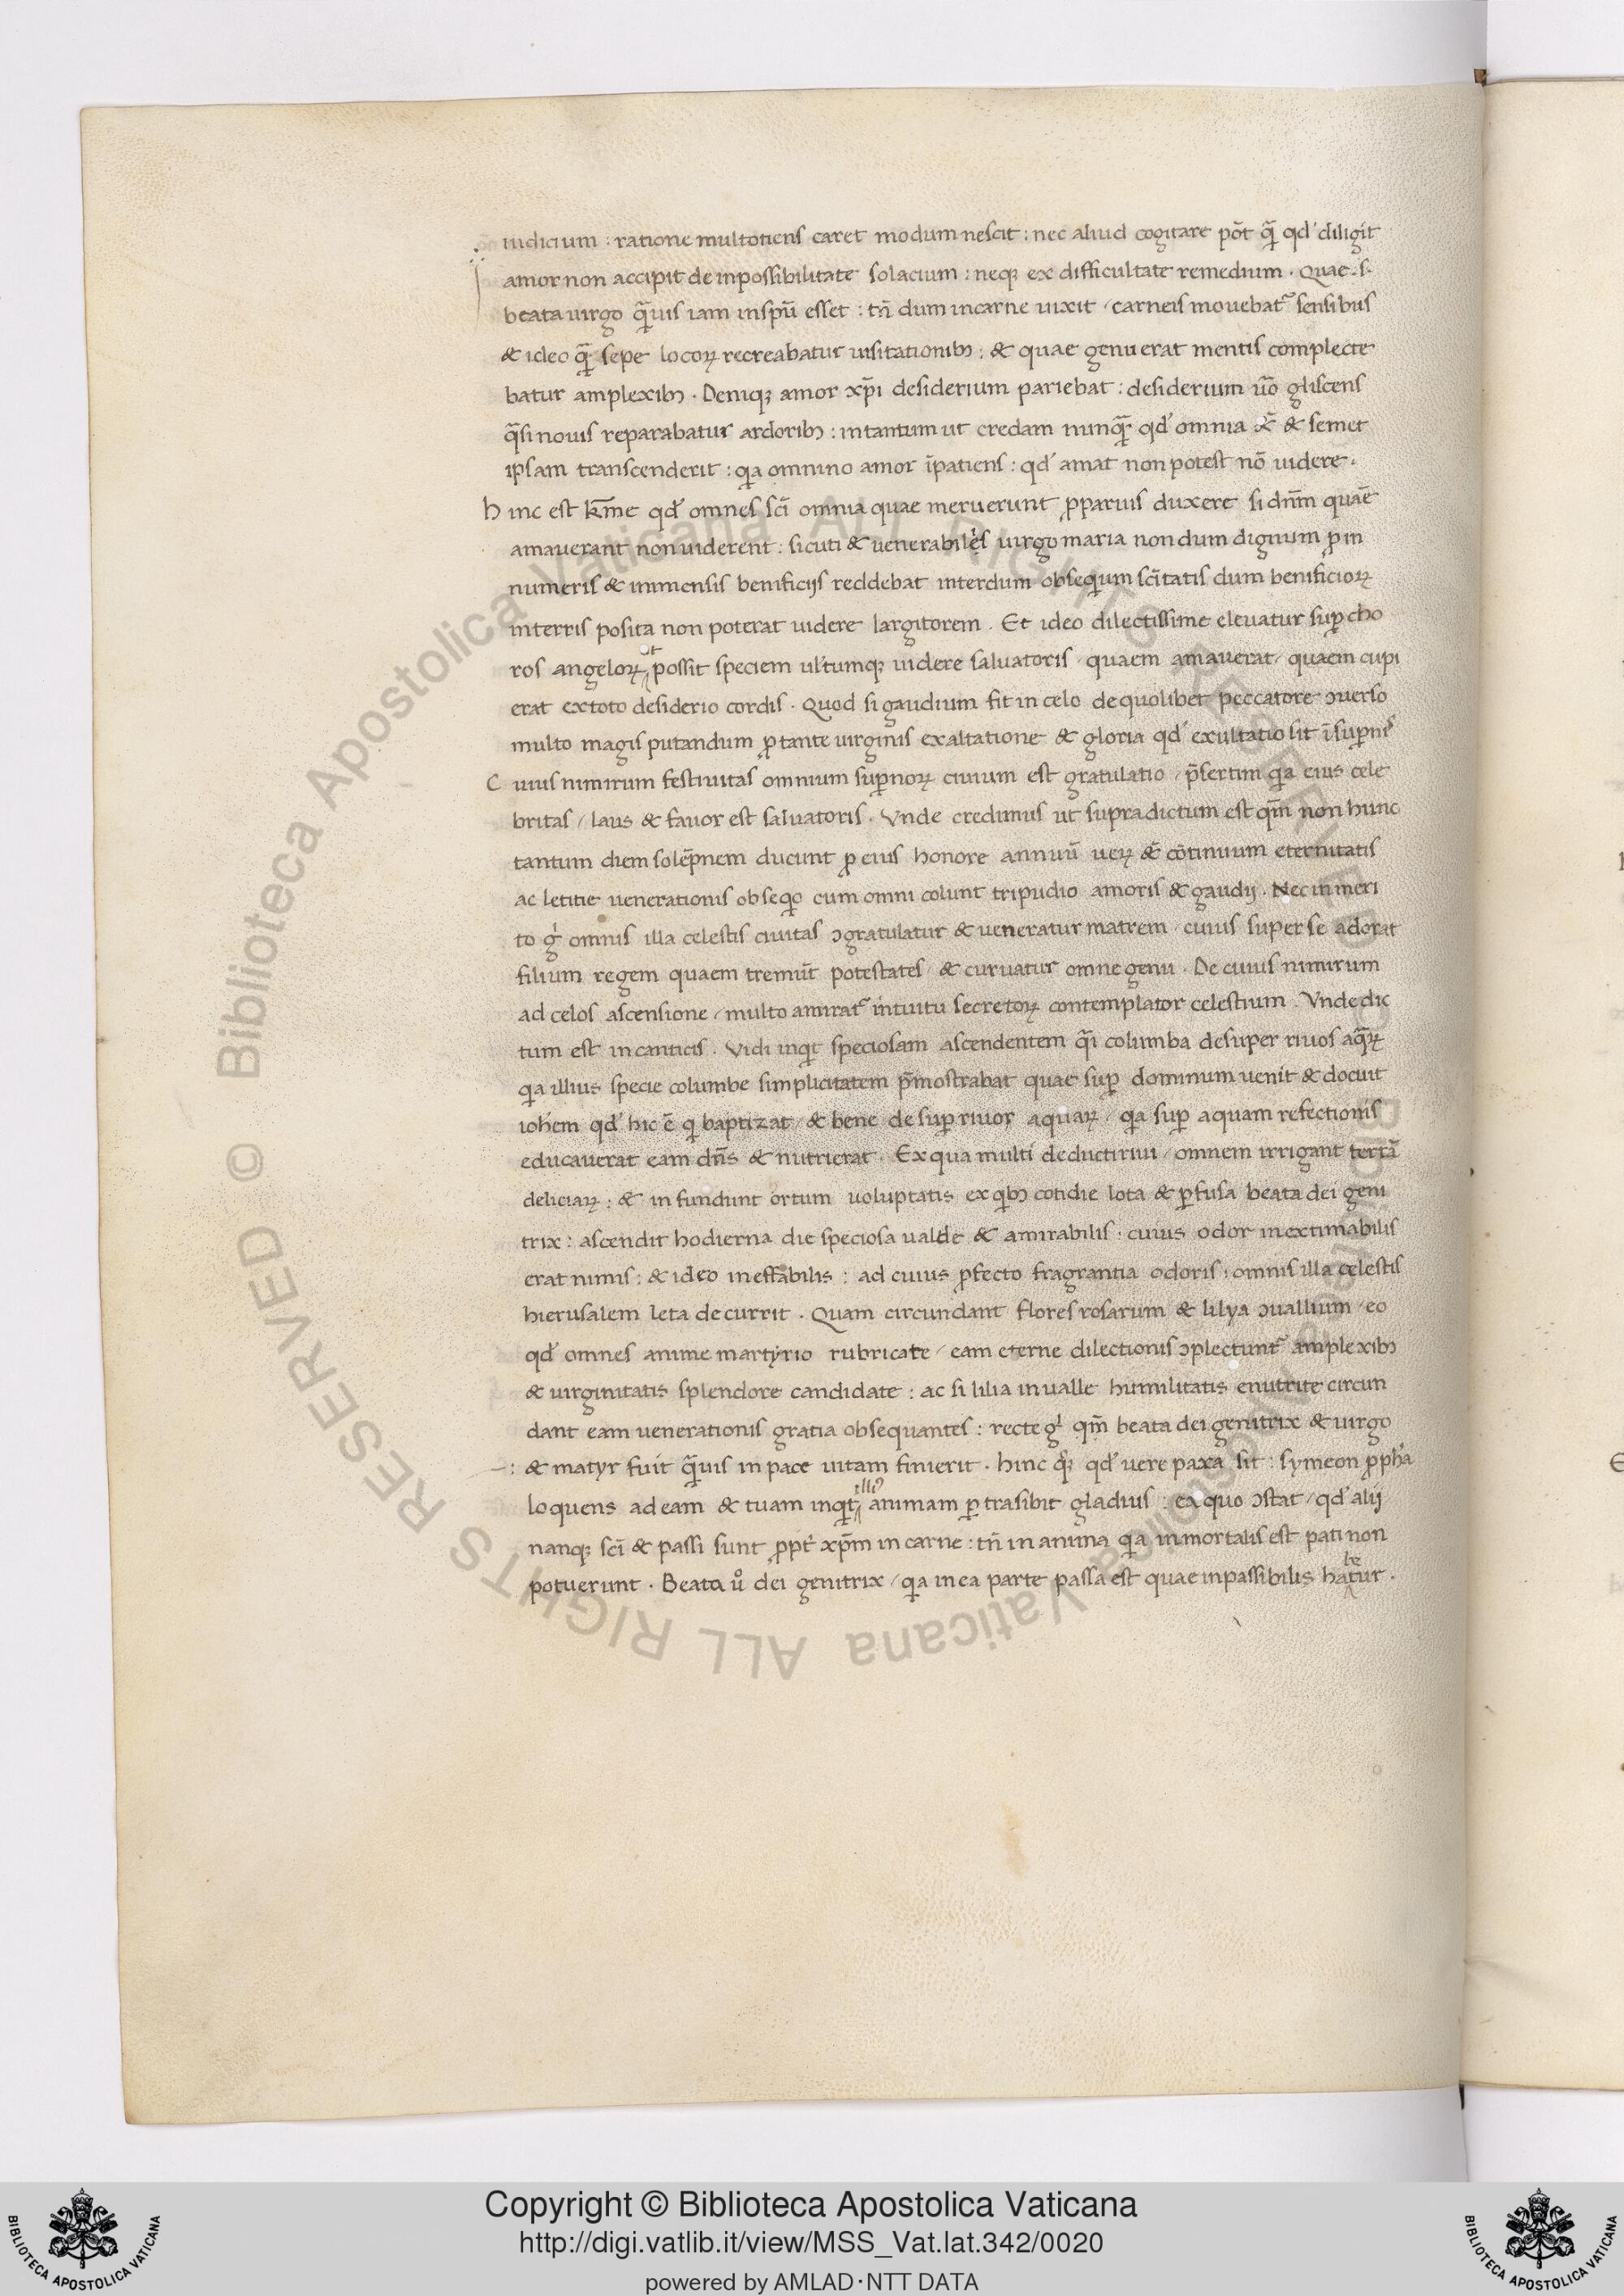 iudicium : ratione multotiens caret modum nescit : nec aliud cogitare põt q̃ qd' diligit
amor non accipit de inpossibilitate solacium : neqꝫ ex difficultate remedium . Quae .s.
beata uirgo q̃uis iam in spũ esset : tñ dum in carne uixit / carneis mouebat᷑ sensibus
& ideo q̃ sepe locoꝝ recreabatur uisitationibꝫ : & quae genuerat mentis complecte
batur amplexibꝫ . Deniqꝫ amor xp̃i desiderium pariebat : desiderium ũo gliscens
q̃si nouis reparabatur ardoribꝫ : in tantum ut credam nunq̃ qd' omnia & semet
ipsam transcenderit : qa omnino amor ĩpatiens : qd' amat non potest nõ uidere .
Hinc est k̃me qd' omnes sc̃i omnia quae meruerunt ꝓ paruis duxere si dñm quae
amauerant non uiderent : sicuti & uenerabiles uirgo maria non dum dignum ꝓ in
numeris & inmensis benificijs reddebat interdum obsequium sc̃itatis dum benificioꝝ
in terris posita non poterat uidere largitorem . Et ideo dilectissime eleuatur suꝑ cho
ros angeloꝝ ut possit speciem uultumqꝫ uidere saluatoris / quaem amauerat / quaem cupi
erat ex toto desiderio cordis . Quod si gaudium fit in celo de quolibet peccatore ɔuerso
multo magis putandum ꝓ tante uirginis exaltatione & gloria qd' exultatio sit ĩ suꝑnis
Cuius nimirum festiuitas omnium suꝑnoꝝ ciuium est gratulatio / p̃sertim qa eius cele
britas / laus & fauor est saluatoris . Vnde credimus ut supradictum est qm̃ non hunc
tantum diem solẽpnem ducunt ꝓ eius honore annuũ ueꝝ & cõtinuum eternitatis
ac letitie uenerationis obseqo cum omni colunt tripudio amoris & gaudij . Nec inmeri
to g omnis illa celestis ciuitas ɔgratulatur & ueneratur matrem / cuius super se adorat
filium regem quaem tremũt potestates / & curuatur omne genu . De cuius nimirum
ad celos ascensione / multo amirat᷑ intuitu secretoꝝ contemplator celestium . Vnde dic
tum est in canticis . Vidi inqt speciosam ascendentem q̃i columba desuper riuos aq̃ꝝ
qa illius specie columbe simplicitatem p̃mostrabat quae suꝑ dominum uenit & docuit
iohem qd' hic ẽ q baptizat / & bene de suꝑ riuor aquaꝝ / qa suꝑ aquam refectionis
educauerat eam dñs & nutrierat . Ex qua multi deducti riui / omnem irrigant terrã
deliciaꝝ : & in fundunt ortum uoluptatis ex qbꝫ cotidie lota & ꝑfusa beata dei geni
trix : ascendit hodierna die speciosa ualde & amirabilis : cuius odor inextimabilis
erat nimis : & ideo ineffabilis : ad cuius ꝓfecto fragrantia odoris : omnis illa celestis
hierusalem leta decurrit . Quam circundant flores rosarum & lilya ɔuallium / eo
qd' omnes anime martyrio rubricate / eam eterne dilectionis ɔplectunt᷑ amplexibꝫ
& uirginitatis splendore candidate : ac si lilia in ualle humilitatis enutrite circun
dant eam uenerationis gratia obsequantes : recte g qm̃ beata dei genitrix & uirgo
& matyr fuit q̃uis in pace uitam finierit . hinc qꝫ qd' uere paxa sit : symeon ꝓpha
loquens ad eam & tuam inqt illi᷒ animam ꝑtrasibit gladius : ex quo ɔstat / qd' alij
nanqꝫ sc̃i & passi sunt ꝓpt xp̃m in carne : tñ in anima qa inmortalis est pati non
potuerunt . Beata uo dei genitrix / qa in ea parte passa est quae inpassibilis habetur .
Copyright © Biblioteca Apostolica Vaticana
http://digi.vatlib.it/view/MSS_Vat.lat.342/0020
powered by AMLAD·NTT DATA
BIBLIOTECA APOSTOLICA VATICANA
BIBLIOTECA APOSTOLICA VATICANA
© Biblioteca Apostolica Vaticana ALL RIGHTS RESERVED